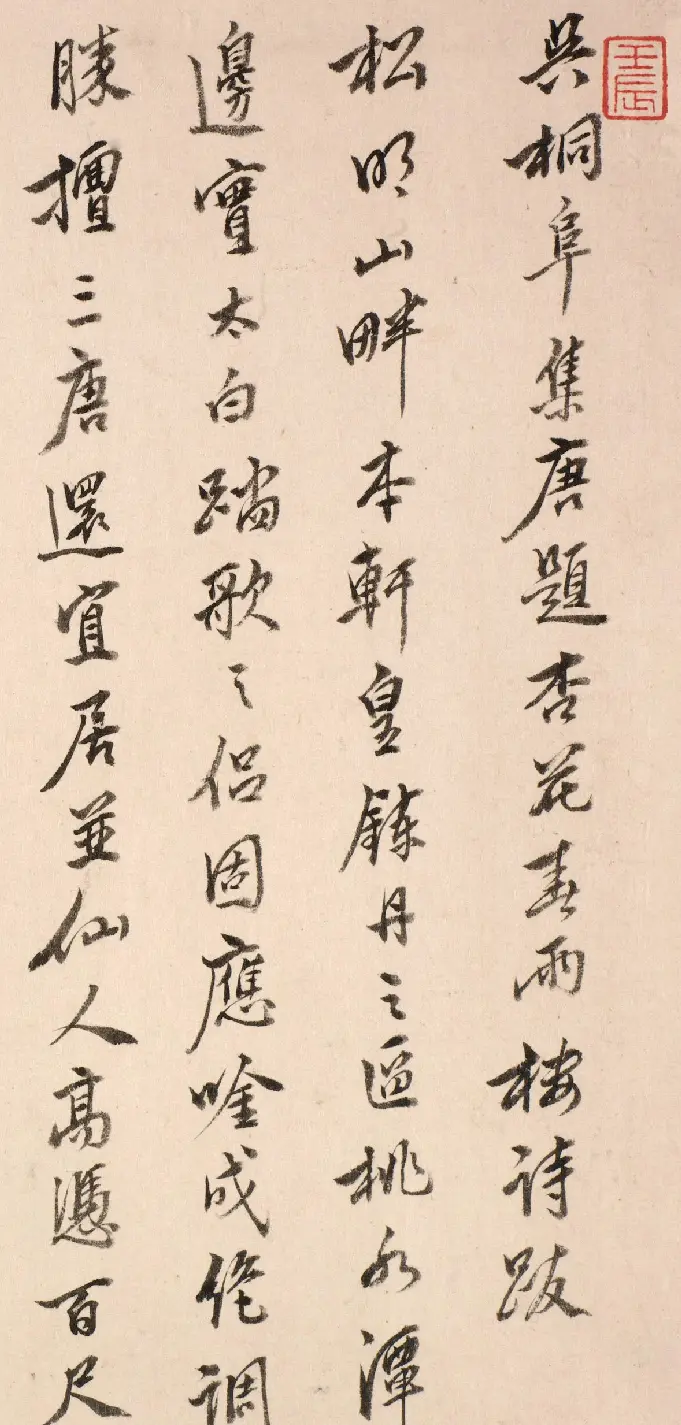 壬辰
吳桐阜集唐題杏花春雨樓詩跋
松明山畔本軒皇鍊丹之區桃水潭
邊實太白踏歌之侣固應唫成絶調
勝擅三唐還宜居並仙人高憑百尺